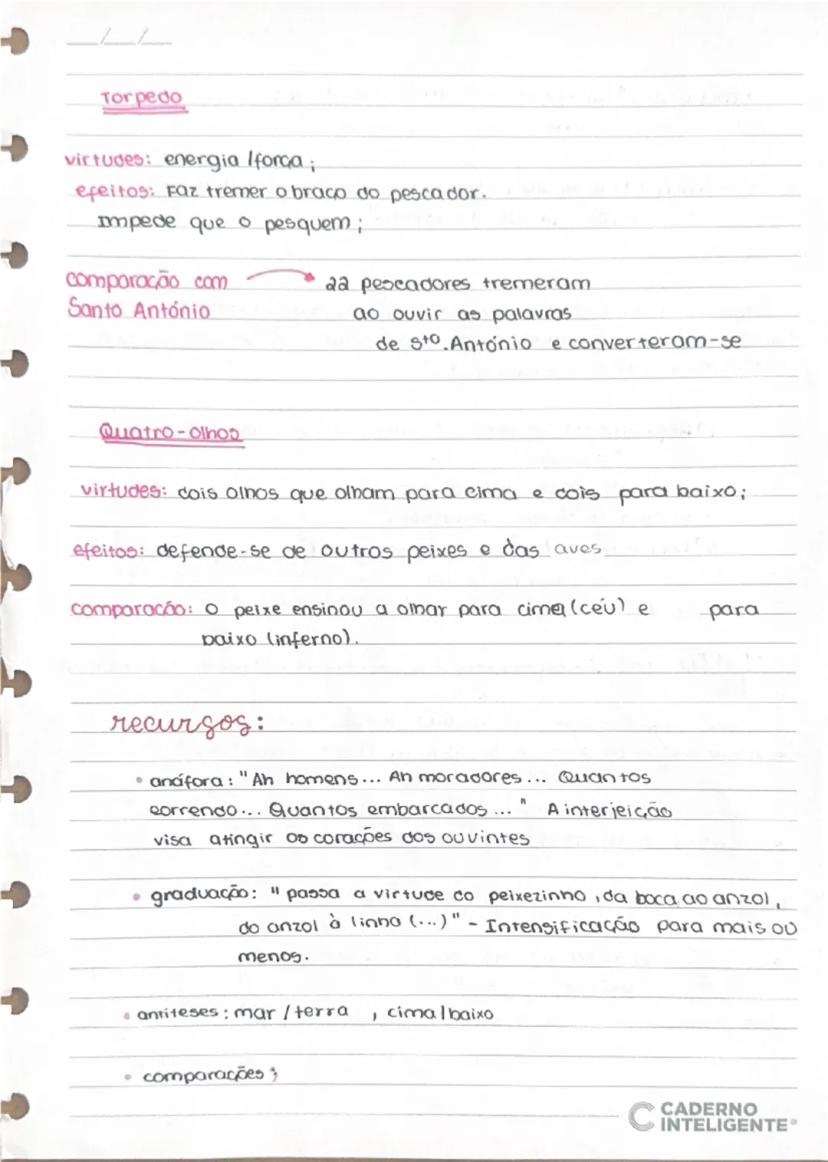 __/__/__
Torpedo
virtudes: energia / força;
efeitos: Faz tremer o braço do pescador.
Impede que o pesquem;
comparação com → 22 pescadores tremeram
Santo António ao ouvir as palavras
de Sto. António e converteram-se
Quatro-olhos
virtudes: dois olhos que olham para cima e dois para baixo;
efeitos: defende-se de outros peixes e das aves
comparação: O peixe ensinou a olhar para cima (céu) e para
baixo (inferno).
recursos:
• anáfora: "Ah homens... Ah moradores... Quantos
correndo... Quantos embarcados..." A interjeição
visa atingir os corações dos ouvintes
• graduação: "passa a virtude do peixezinho, da boca ao anzol,
do anzol à linha (...)" - Intensificação para mais ou
menos.
• antiteses: mar / terra , cima / baixo
• comparações;
CADERNO
INTELIGENTE®